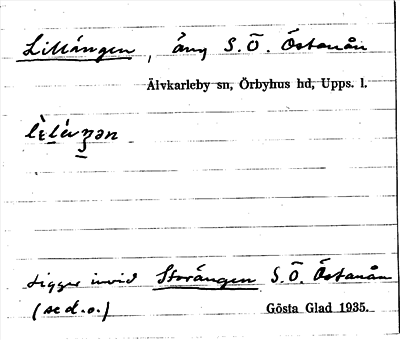 Lillängen, äng S.Ö. Östanån
Älvkarleby sn, Örbyhus hd, Upps. l.
ligger invid Storängen S.Ö. Östanån
(se d.o.)
Gösta Glad 1935.